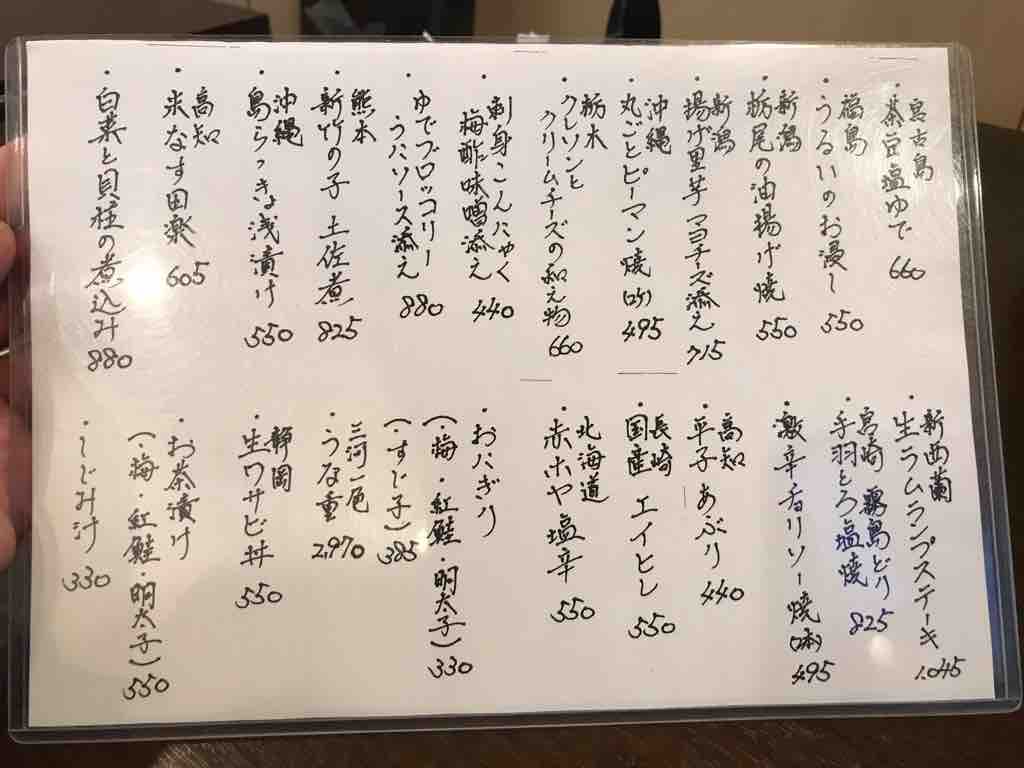 宮古島
・茶豆塩ゆで 660
福島
・うるいのお浸し 550
新潟
・栃尾の油揚げ焼 550
新潟
・揚げ里芋マヨチーズ添え 715
沖縄
・丸ごとピーマン焼(2ヶ) 495
栃木
・クレソンと
クリームチーズの和え物 660
・刺身こんにゃく
梅酢味噌添え 440
・ゆでブロッコリー
うにソース添え 880
熊本
・新竹の子 土佐煮 825
沖縄
・島らっきょ浅漬け 550
高知
・米なす田楽 605
・白菜と貝柱の煮込み 880
新西蘭
・生ラムランプステーキ 1,045
宮崎 霧島どり
・手羽とろ塩焼 825
・激辛チョリソー焼(2本) 495
高知
・平子 あぶり 440
長崎
・国産 エイヒレ 550
北海道
・赤ホヤ塩辛 550
・おにぎり
(・梅・紅鮭・明太子) 330
(・すじ子) 385
三河一色
・うな重 2,970
静岡
・生ワサビ丼 550
・お茶漬け
(・梅・紅鮭・明太子) 550
・しじみ汁 330